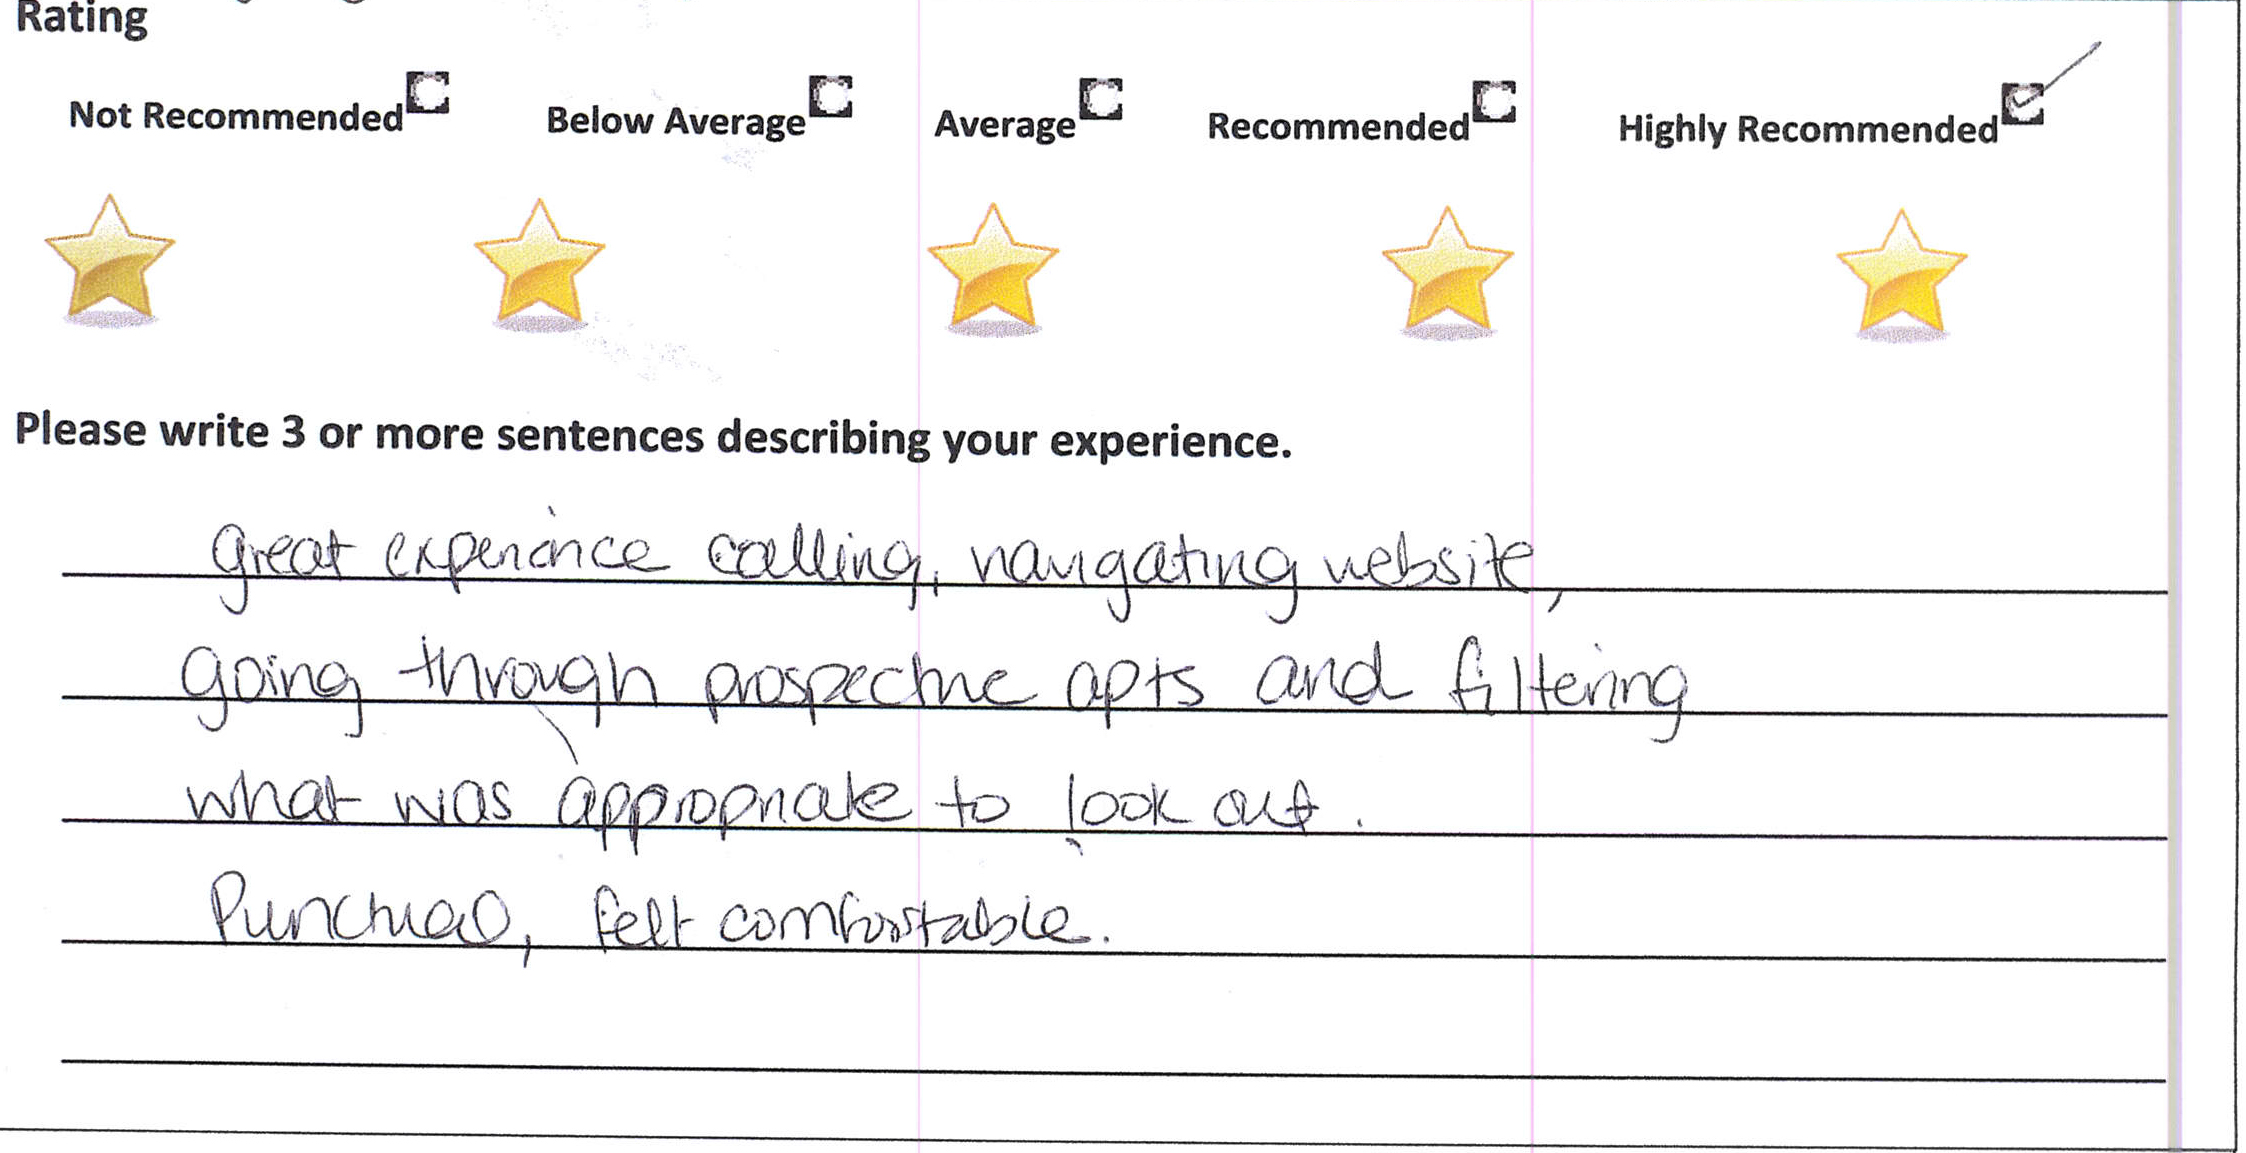 Rating
Not Recommended Below Average Average Recommended Highly Recommended
Please write 3 or more sentences describing your experience.
Great experience calling, navigating website,
going through prospective apts and filtering
what was appropriate to look out.
Punctual, felt comfortable.